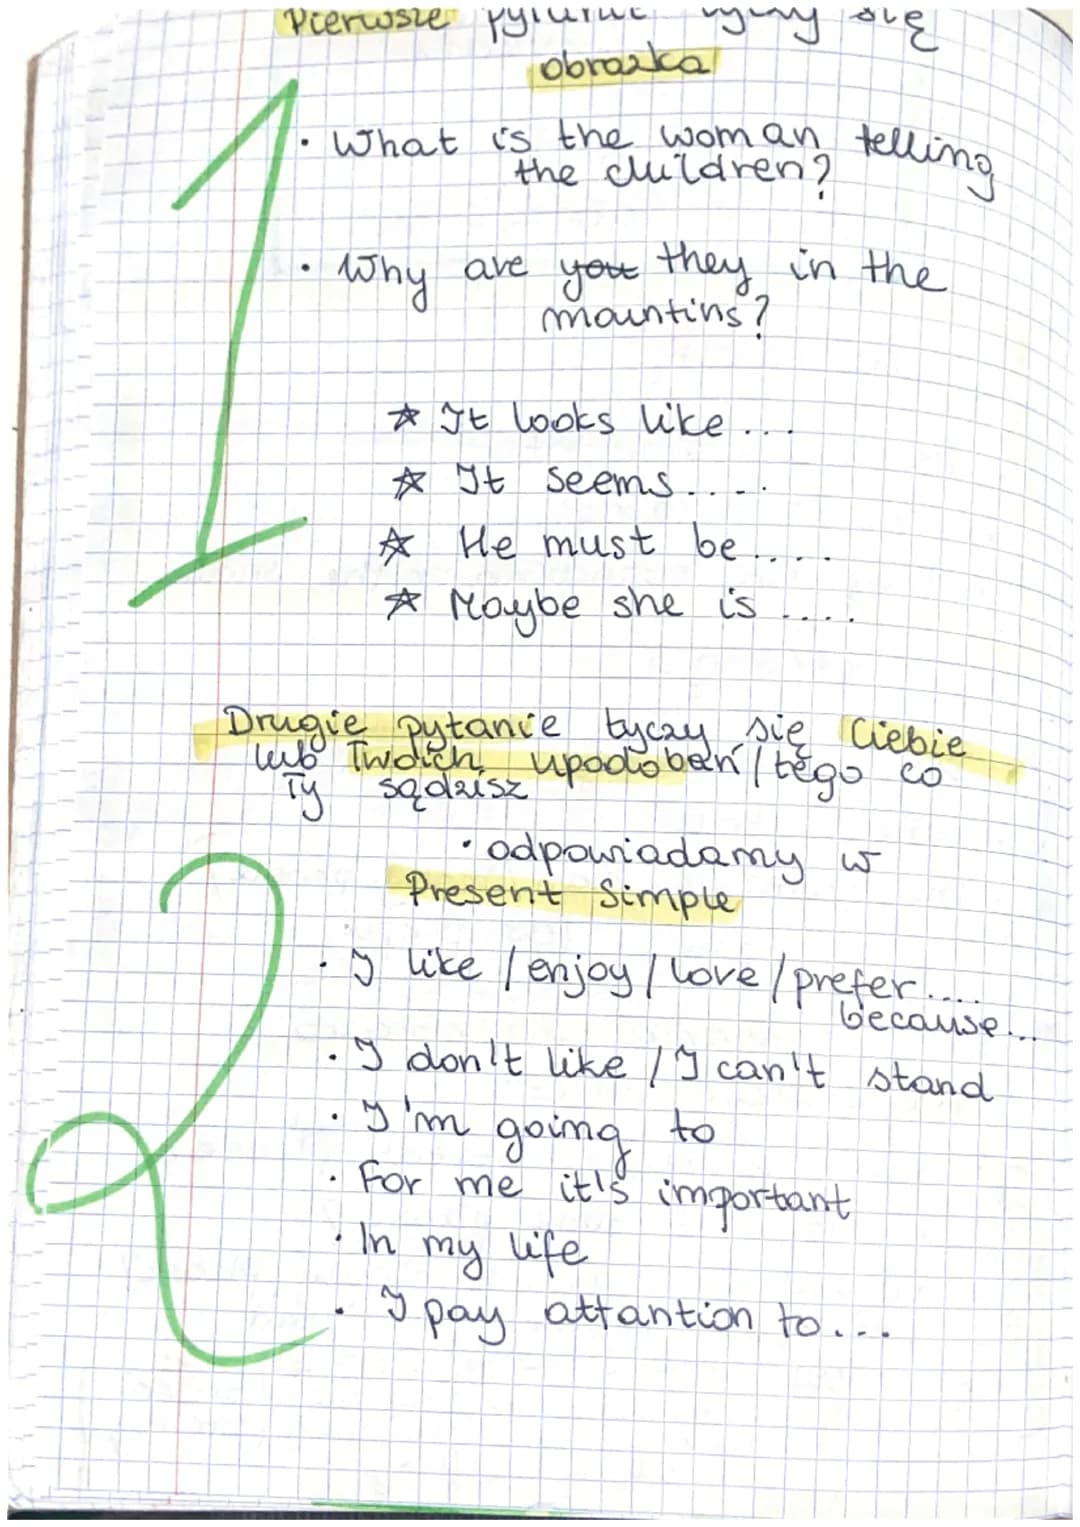 Pierwsze pytanie tyczy się
obrazka
1
• What is the woman telling
the children?
• Why are you they in the
mountins?
☆ It looks like ...
☆ It seems....
☆ He must be....
☆ Maybe she is ....
Drugie pytanie tyczy się Ciebie
lub Twoich upodobań/tego co
Ty sądzisz
• odpowiadamy w
Present Simple
2
• I like / enjoy / love / prefer....
because...
• I don't like / I can't stand
• I'm going to
• For me it's important
• In my life
• I pay attantion to...